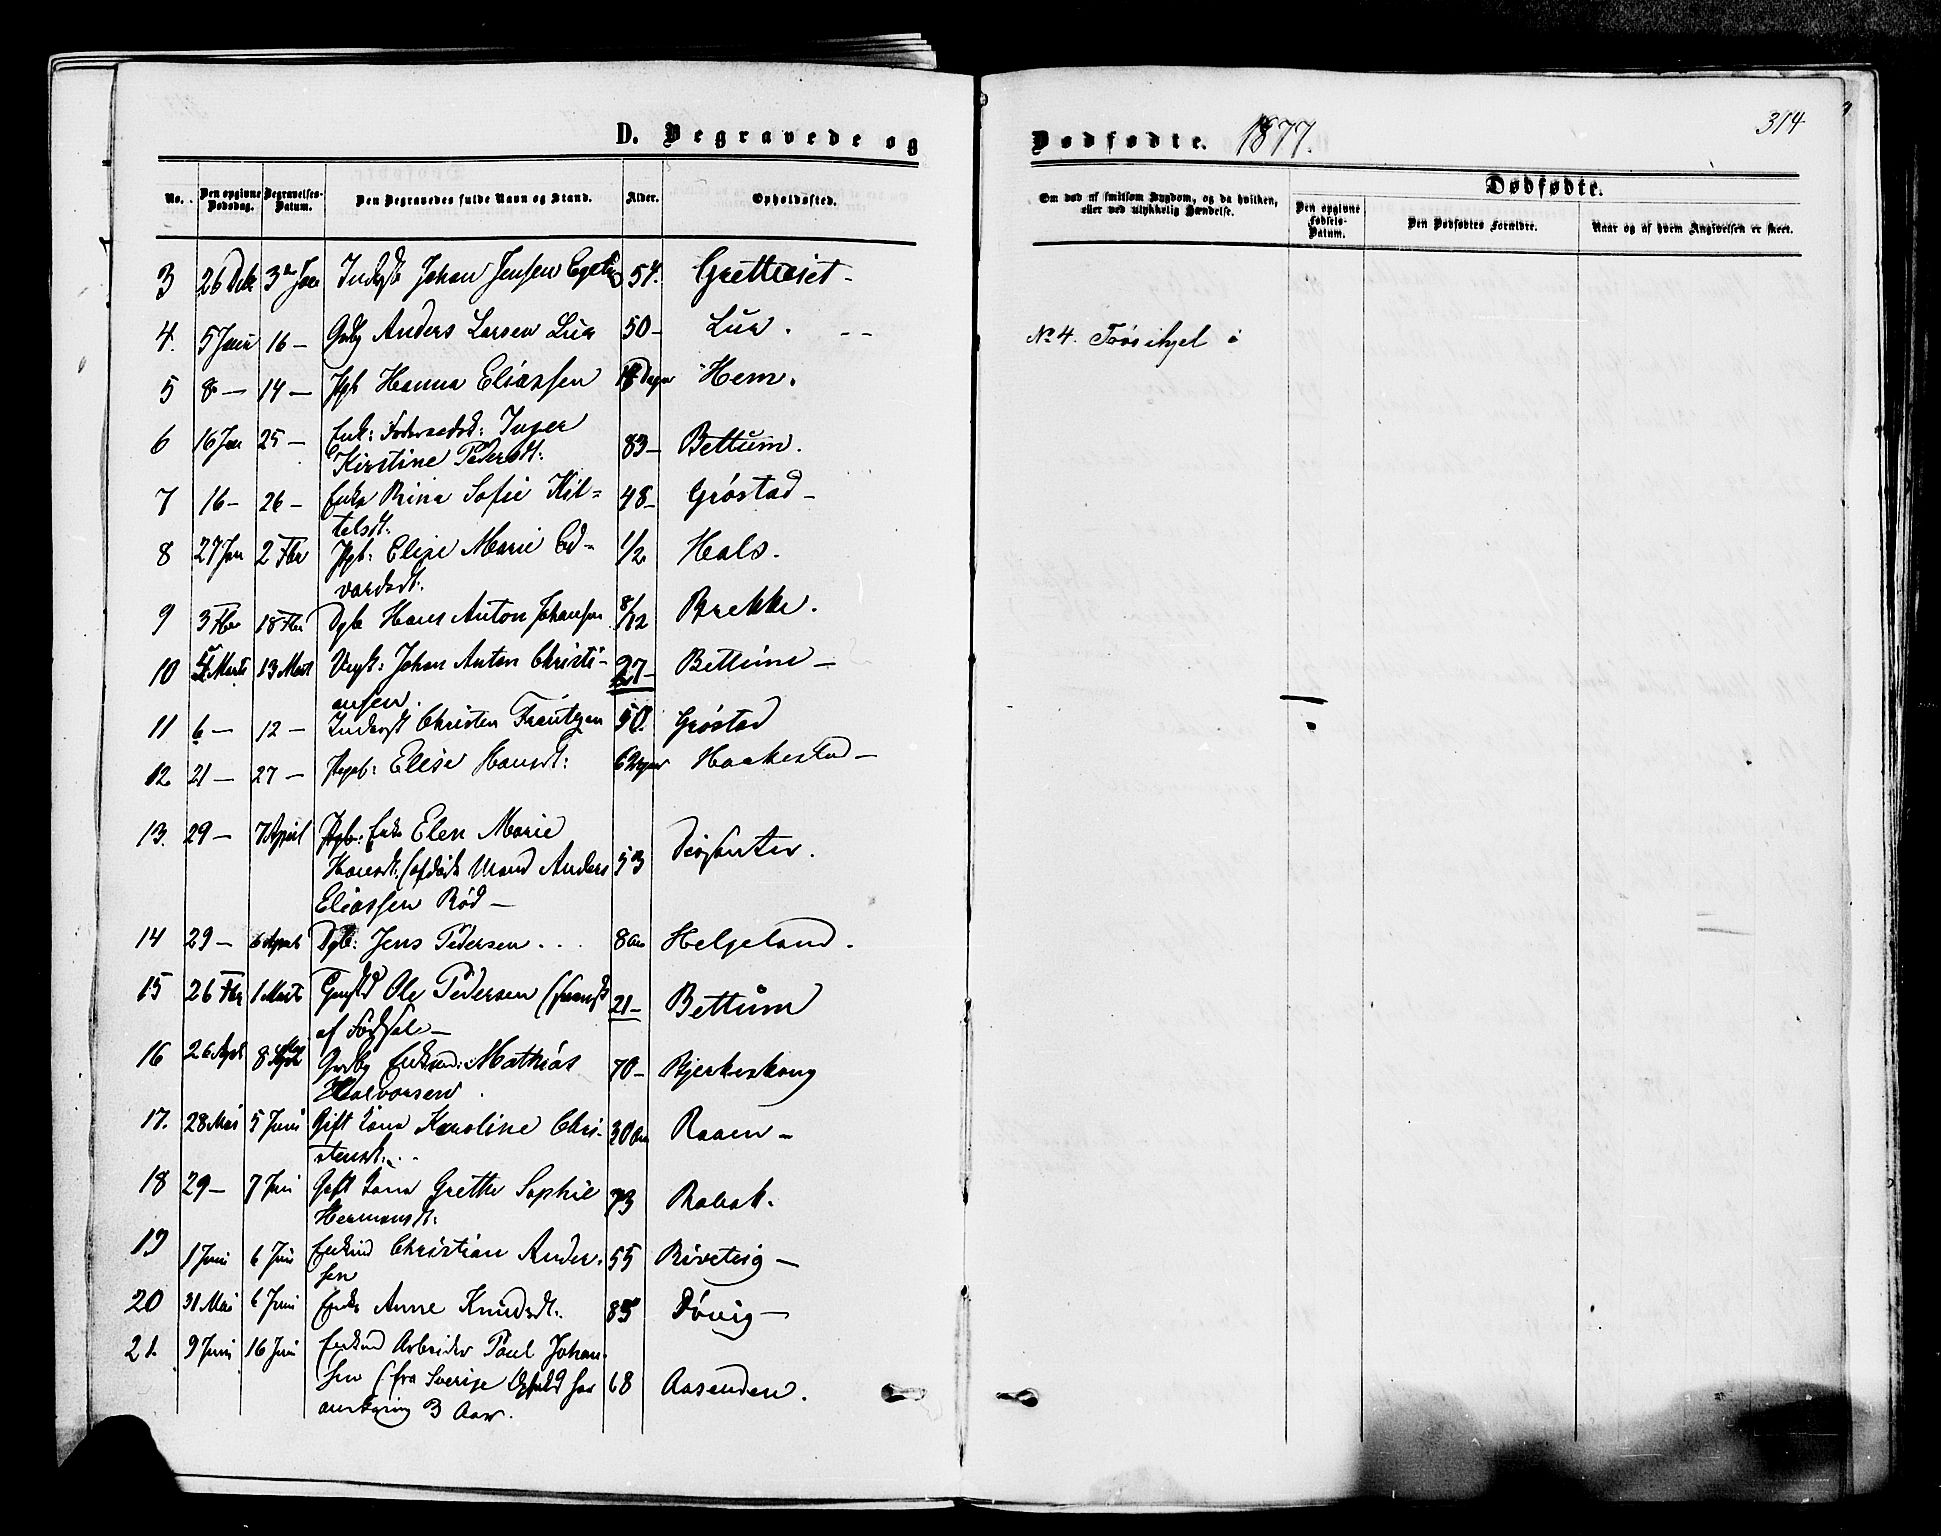 D. Begravede og
No.
Den opgivne Dødsdag.
Begravelses-Datum.
Den Begravedes fulde Navn og Stand.
Alder.
Opholdssted.
3 26 Dcbr 3 Jan Johan Jensen 54.
4. 5 Janu 16 — Anders Larsen Lua 50 — Lua. — —
5 8 — 14 — Pgb Hanna Eliassen Dager Hem.
6 16 Jan 25 — Enk: Inger
Kirstine Pedersdt: 83 — Bettum.
7 16 — 26 — Enke Rina Sofie Kit=
telsdt: 48 — Gróstad —
8 27 Jan 2 Fbr Pgb: Elise Marie Ed-
vardsdt: 1/2 Hals.
9 3 Fbr 18 Fbr Dgb Hans Anton Johansen 8/12 Brekke.
10 Marts 13 Mart Ungk: Johan Anton Christi-
ansen. 27 — Bettum —
11 6 — 12 — Christen Frantzen 50. Gróstad
12. 21 — 27 — Pigeb: Elise Hansdt: 6 Dager Haakestad —
13. 29 — 7 April Enke Elen Marie
Hansdt: (afdøde Mand Anders 53
Eliassen Rød —
14 29 — 6 April Dgb: Jens Pedersen . . . 8 Aar Helgeland.
15 26 Fbr 1 Marts Ole Pedersen (
af Fødsel — 21 — Bettum
16 26 April 8 Mai Enkemd: Mathias
Halvorsen. 70 — Bjerkeskoug
17. 28 Mai 5 Juni Gift Kona Karoline Chri-
stensdt: . . 30 Aar Raaen —
18 29 — 7 Juni Gift Kona Grethe Sophie
Hermansdt: 73 Rabak.
19 1 Juni 6 Juni Enkmd Christian Ander-
sen 55 Röveteig —
20 31 Mai 6 Juni Enke Anne Knudsdt. 85 Dóvig —
21. 9 Juni 16 Juni Enkmd Arbeider Paul Johan-
sen (fra Sverige Ophold her 68 Aasenden.
omkring 3 Aar.
Dødfødte. 1877. 314
Om død af smitsom Sygdom, og da hvilken,
eller ved ulykkelig Hændelse.
Dødfødte.
Den opgivne Fødsels-Datum.
Den Dødfødtes Forældre.
Naar og af hvem Angivelsen er skeet.
No 4. Frós ihjel